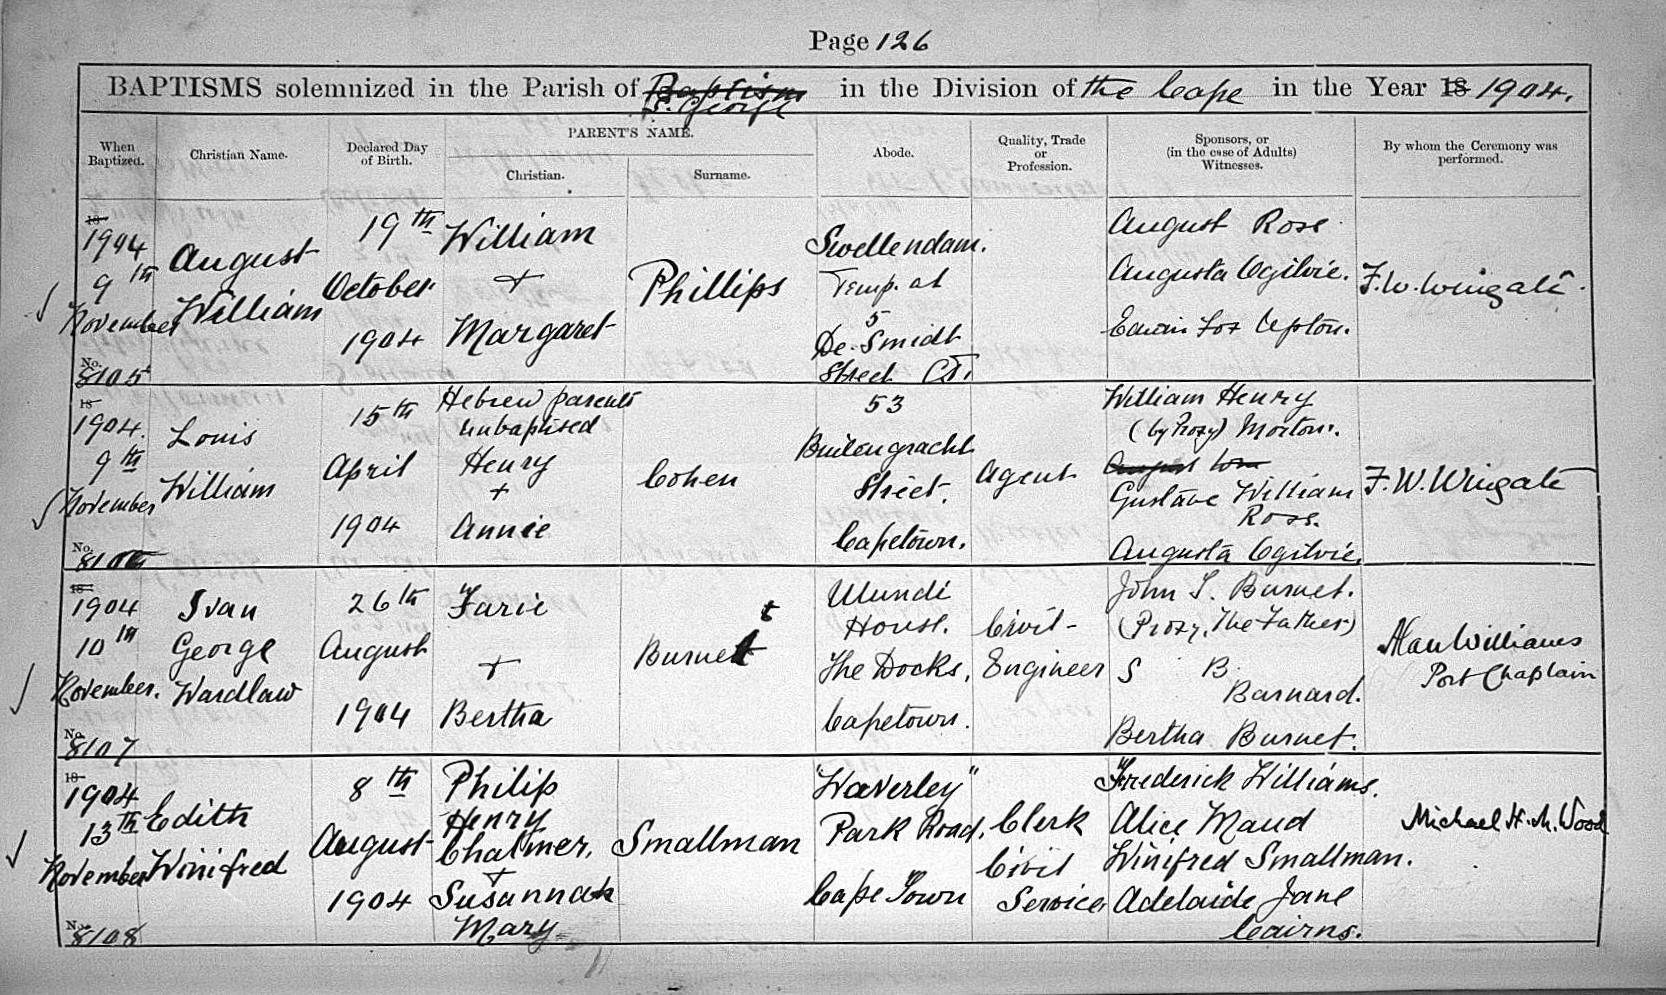 Page 126
BAPTISMS solemnized in the Parish of Baptism St. George in the Division of the Cape in the Year 18 1904.
When Baptized.
Christian Name.
Declared Day of Birth.
PARENT'S NAME.
Christian.
Surname.
Abode.
Quality, Trade or Profession.
Sponsors, or (in the case of Adults) Witnesses.
By whom the Ceremony was performed.
18
1904
9th
November
No. 8105
August
William
19th
October
1904
William
+
Margaret
Phillips
Swellendam.
Temp. at
5
De Smidt
Street CT.
August Rose
Augusta Ogilvie.
Edwin Fox Upton.
F.W. Wingate.
18
1904.
9th
November
No. 8106
Louis
William
15th
April
1904
Hebrew parents
unbaptised
Henry
+
Annie
Cohen
53
Buitengracht
Street.
Capetown.
Agent
William Henry
(by Proxy) Morton.
August Wm
Gustave William
Rose.
Augusta Ogilvie.
F.W. Wingate
18
1904
10th
November.
No. 8107
Ivan
George
Wardlaw
26th
August
1904
Farie
+
Bertha
Burnet
t
Ulundi
House.
The Docks,
Capetown.
Civil-
Engineer
John S. Burnet.
(Proxy, The Father)
S B
Barnard.
Bertha Burnet.
Alan Williams
Port Chaplain
18
1904
13th
November
No. 8108
Edith
Winifred
8th
August
1904
Philip
Henry
Chalmer,
+
Susannah
Mary
Smallman
"Waverley"
Park Road,
Cape Town
Clerk
Civil
Service
Frederick Williams.
Alice Maud
Winifred Smallman.
Adelaide Jane
Cairns.
Michael H. M. Wood